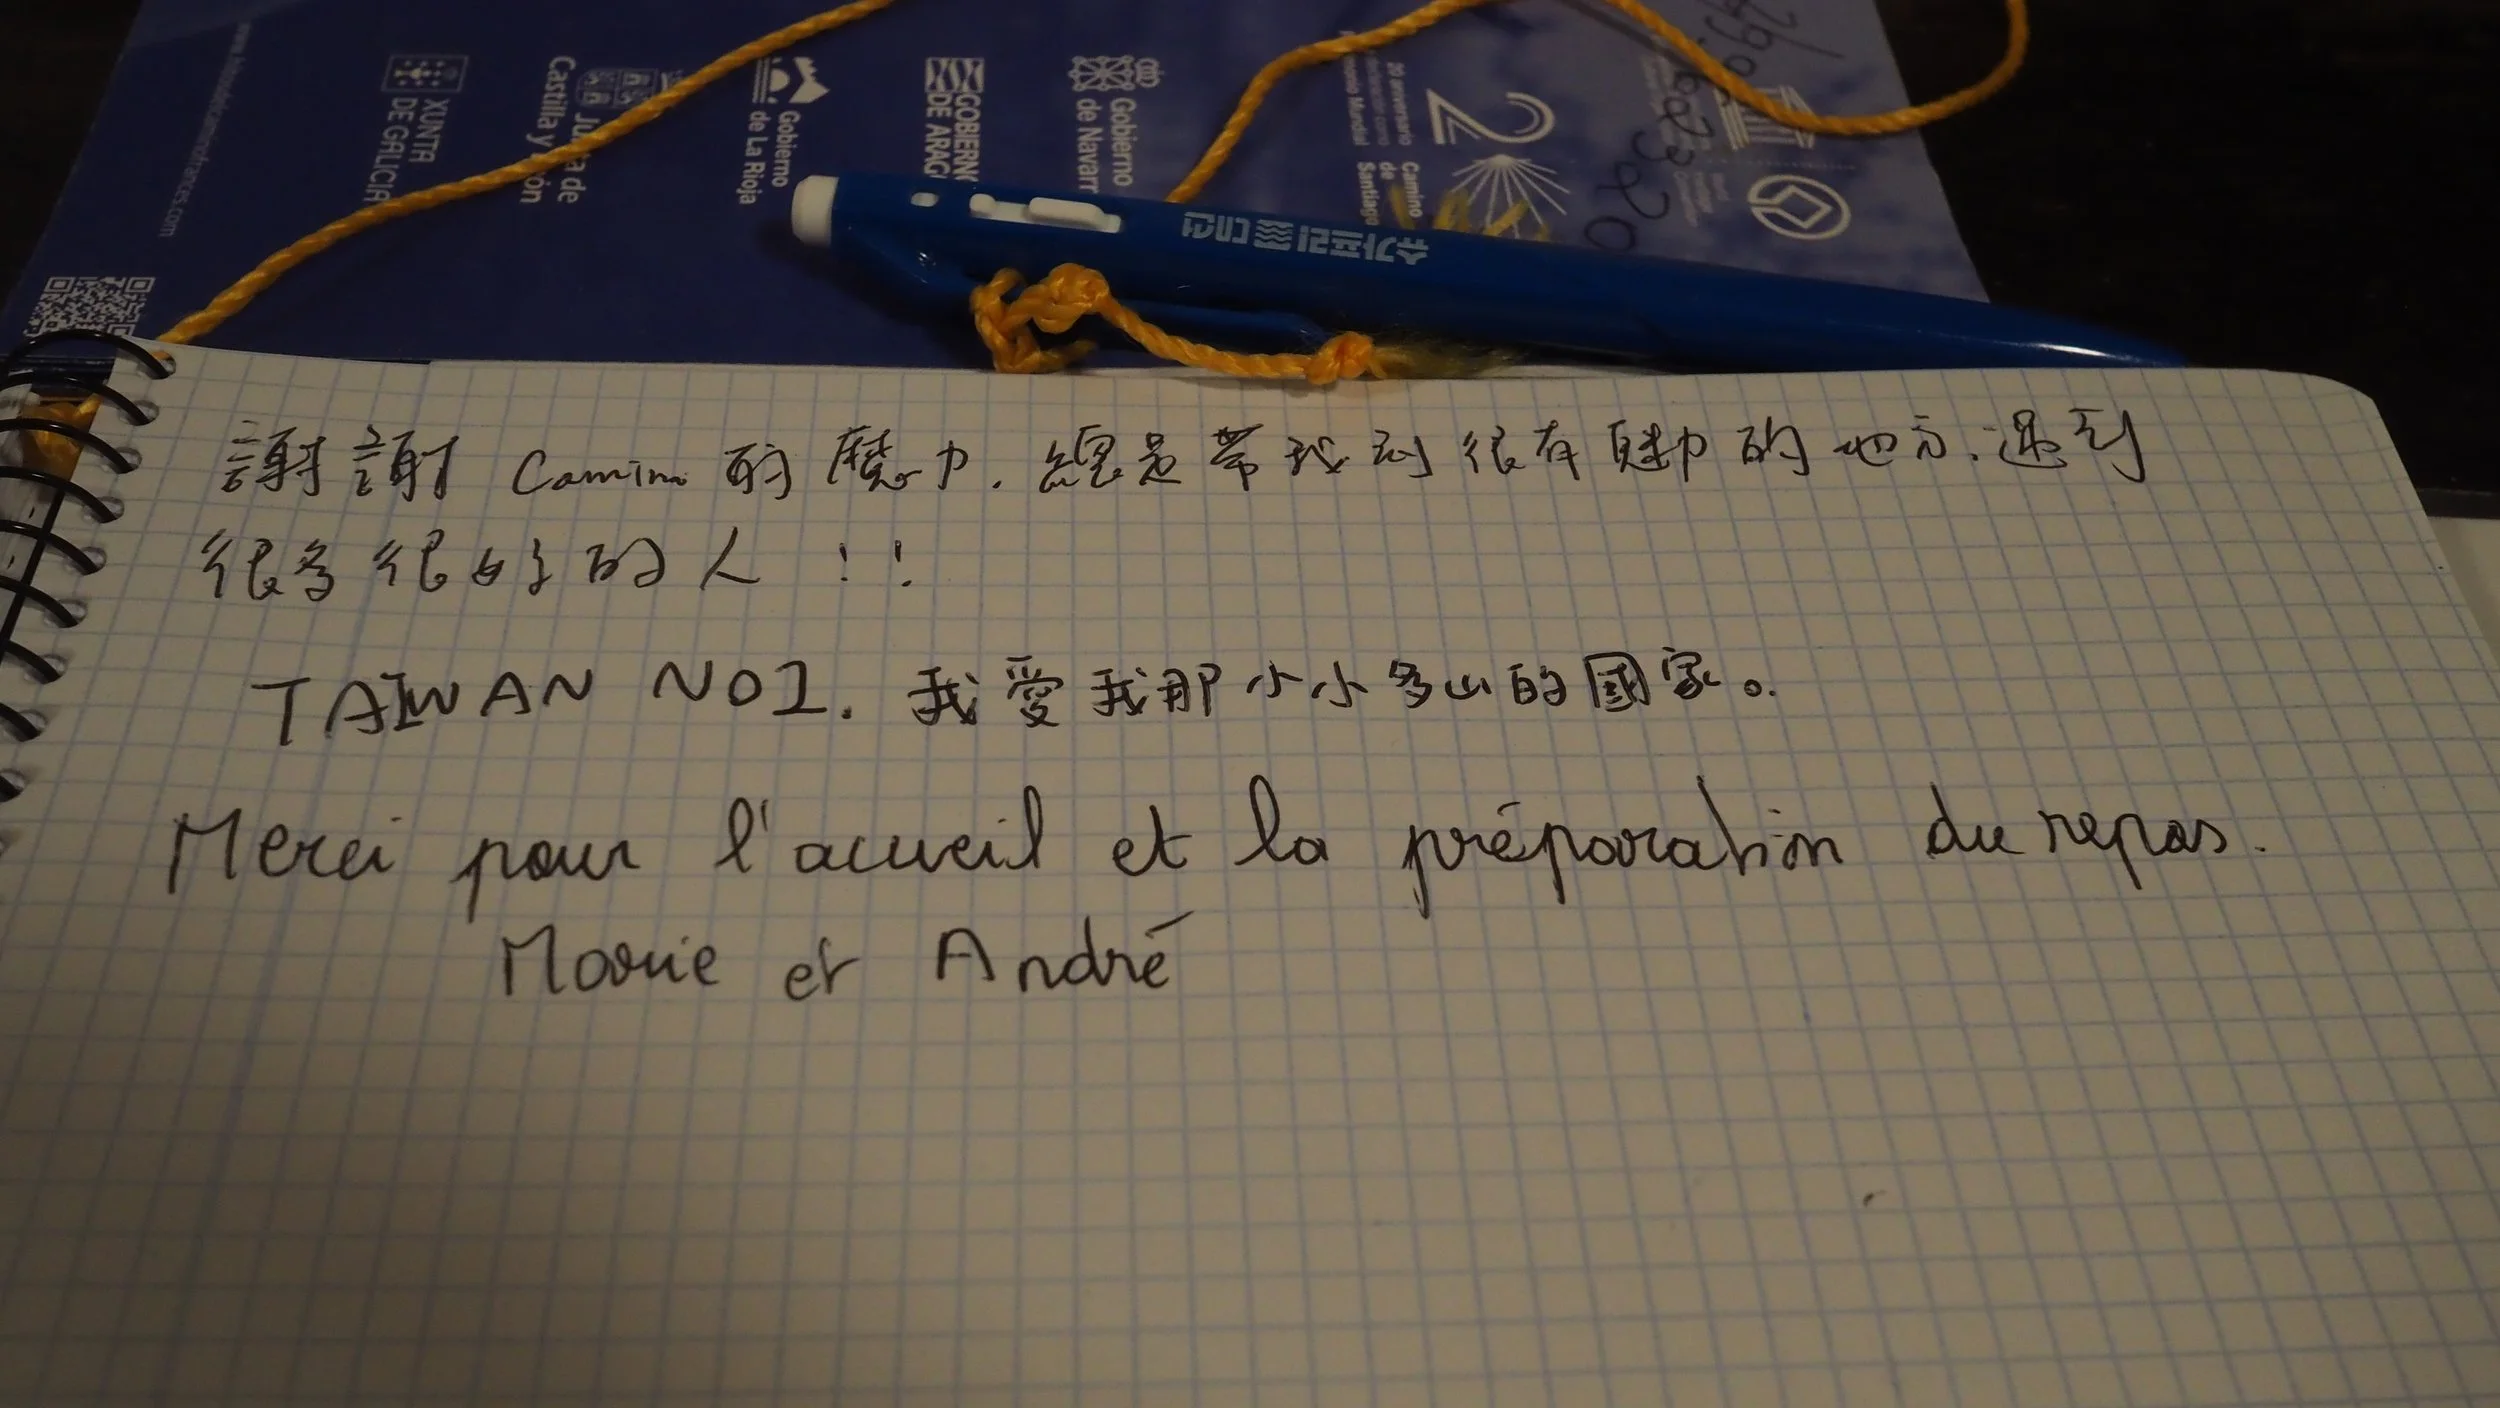 www.
XUNTA
DE GALICIA
Castilla y León
Gobierno
de La Rioja
GOBIERNO
DE ARAG
Gobierno
de Navarr
20 aniversario
Camino
de
Santiago
20
슈가프리 대선
謝謝 Camino 的魔力. 總是帶我到很有魅力的地方. 遇到
很多很好的人 !!
TAIWAN NO1. 我愛我那小小多山的國家。
Merci pour l'acueil et la préparation du repas.
Marie et André